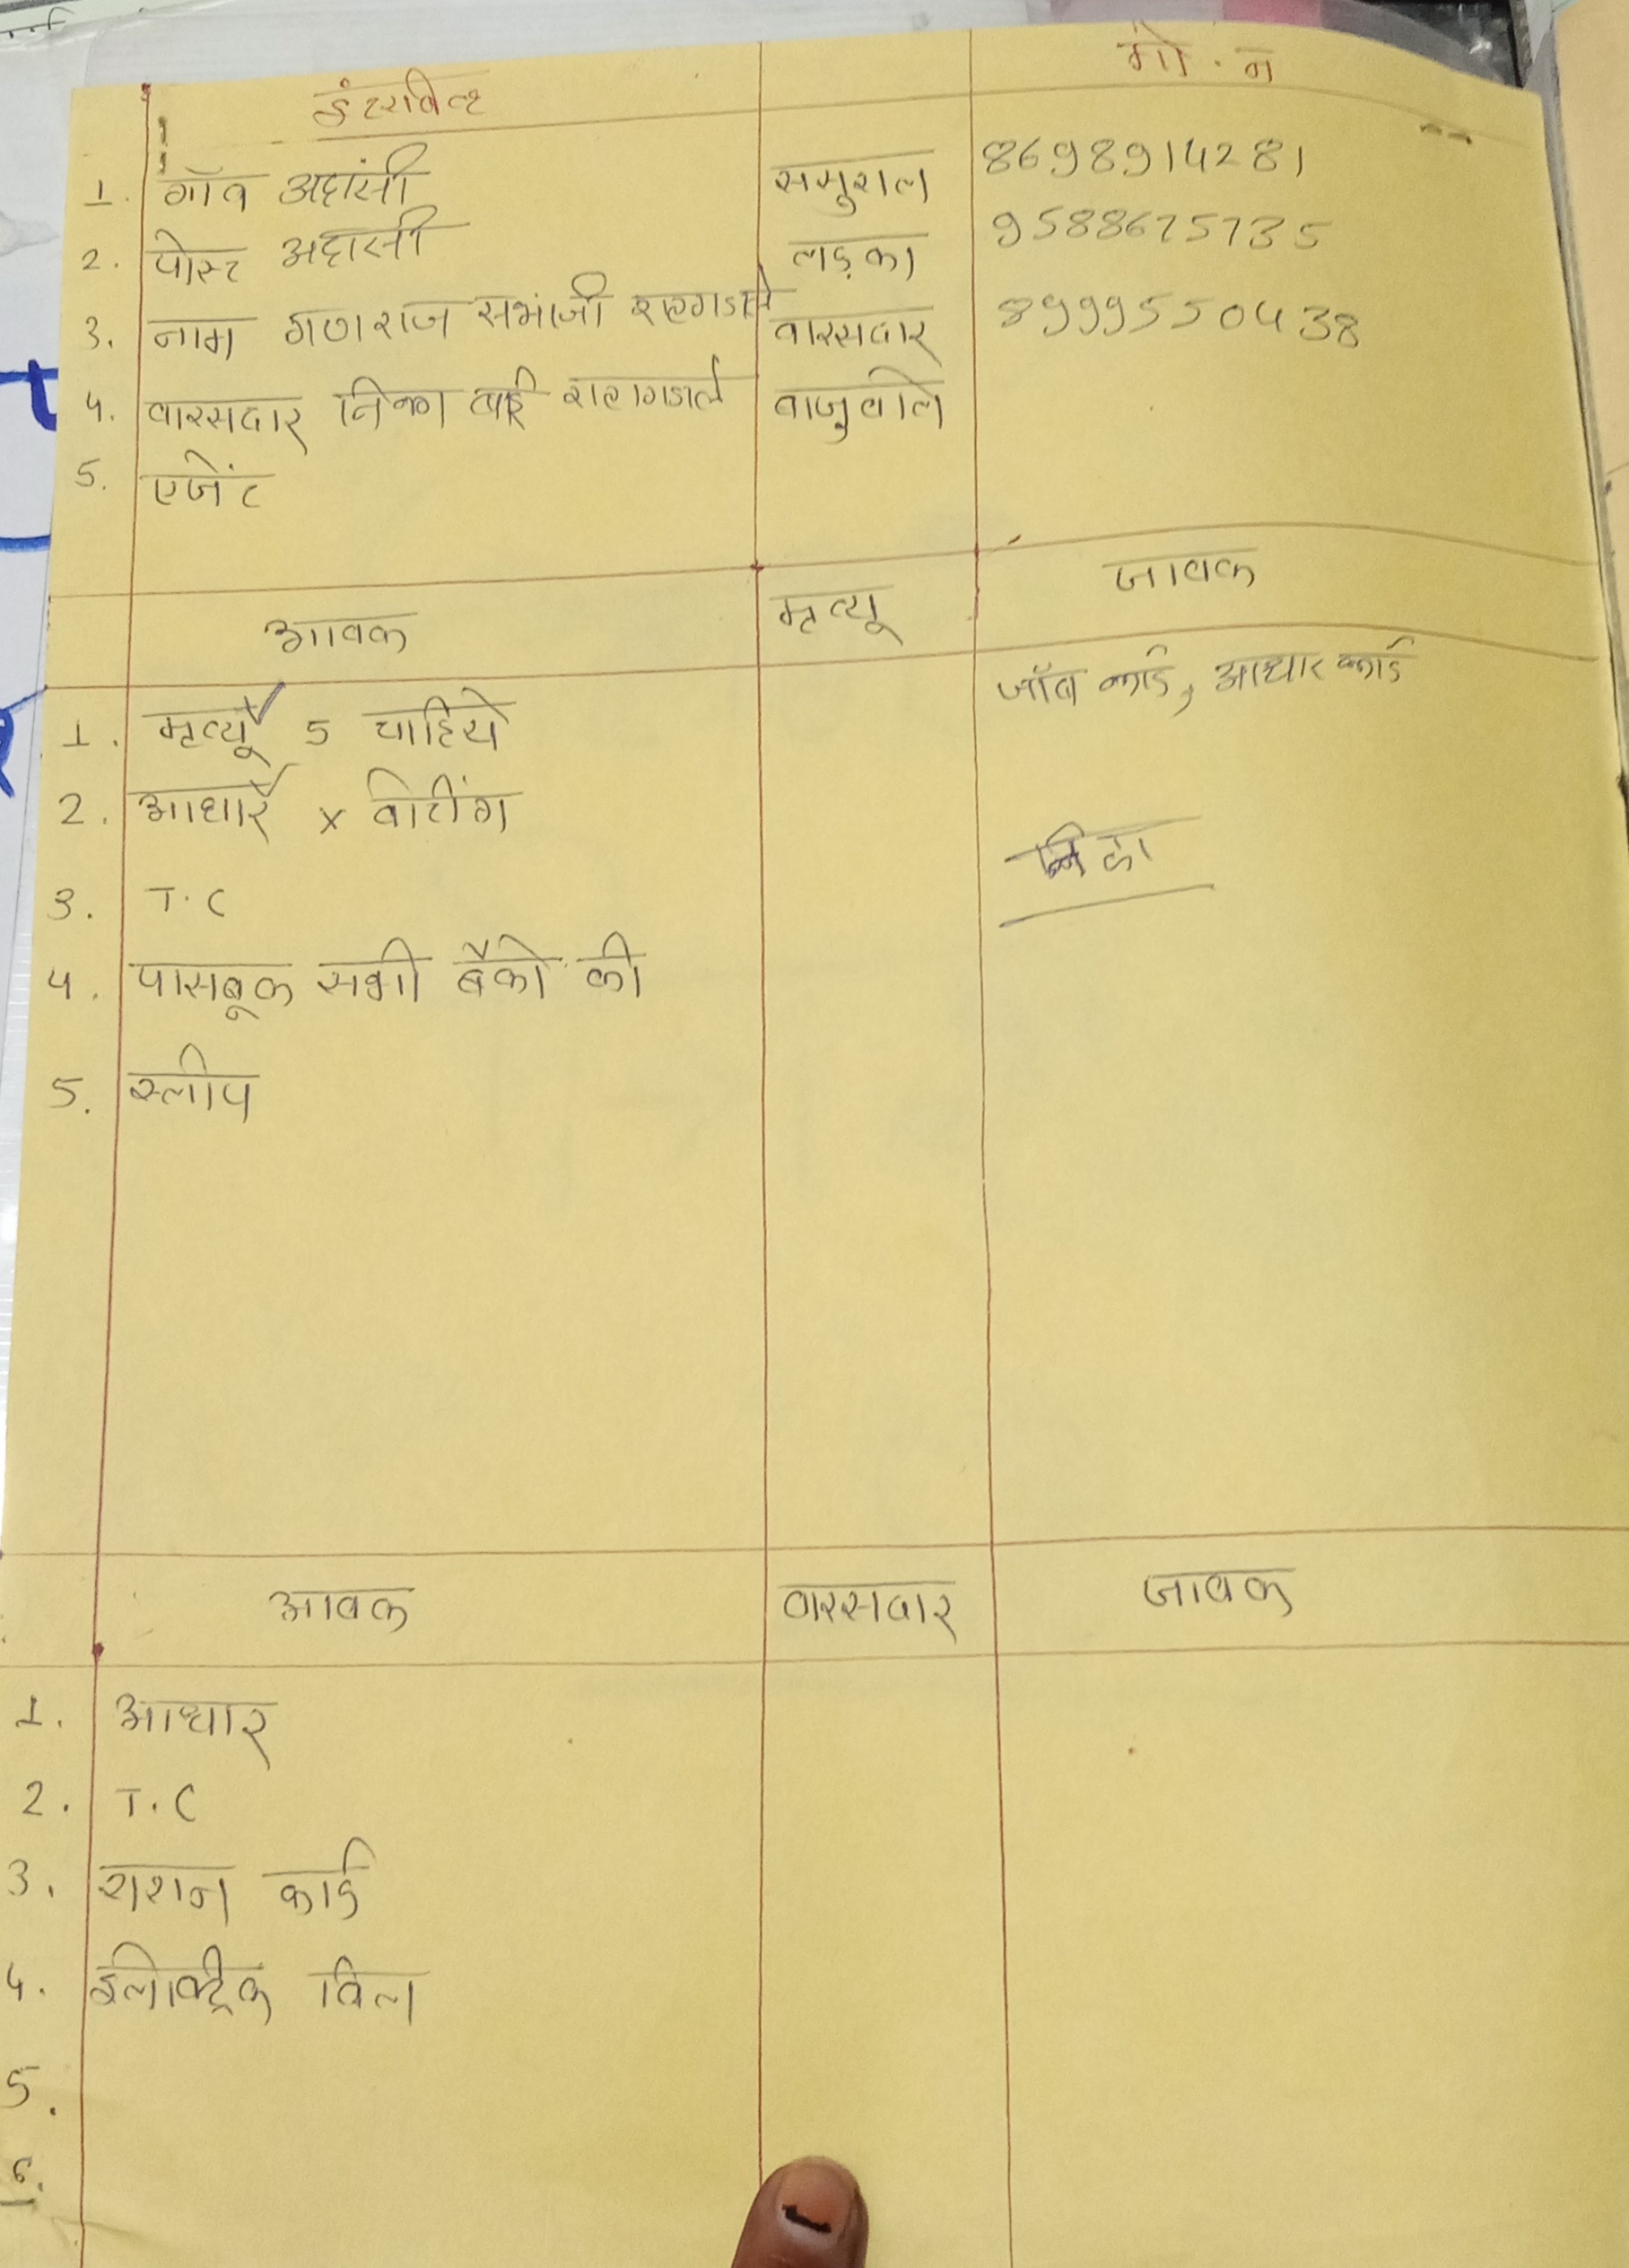 इंटरविव्ह मो. न
1. गॉव अद्दासी ससुराल 8698914281
2. पोस्ट अद्दासी लड़का 9588675735
3. नाम गणराज सभांजी राहागडाले वारसदार 8999550438
4. वारसदार बाई राहागडाले बाजुवाले
5. एजेंट
आवक मृत्यू जावक
1. मृत्यू 5 चाहिये जॉब कार्ड, आधार कार्ड
2. आधार x वोटींग
3. T.C
4. पासबूक सभी बैंको की
5. स्लीप
आवक वारसदार जावक
1. आधार
2. T.C
3. राशन कार्ड
4. इलेक्ट्रीक बिल
5.
6.